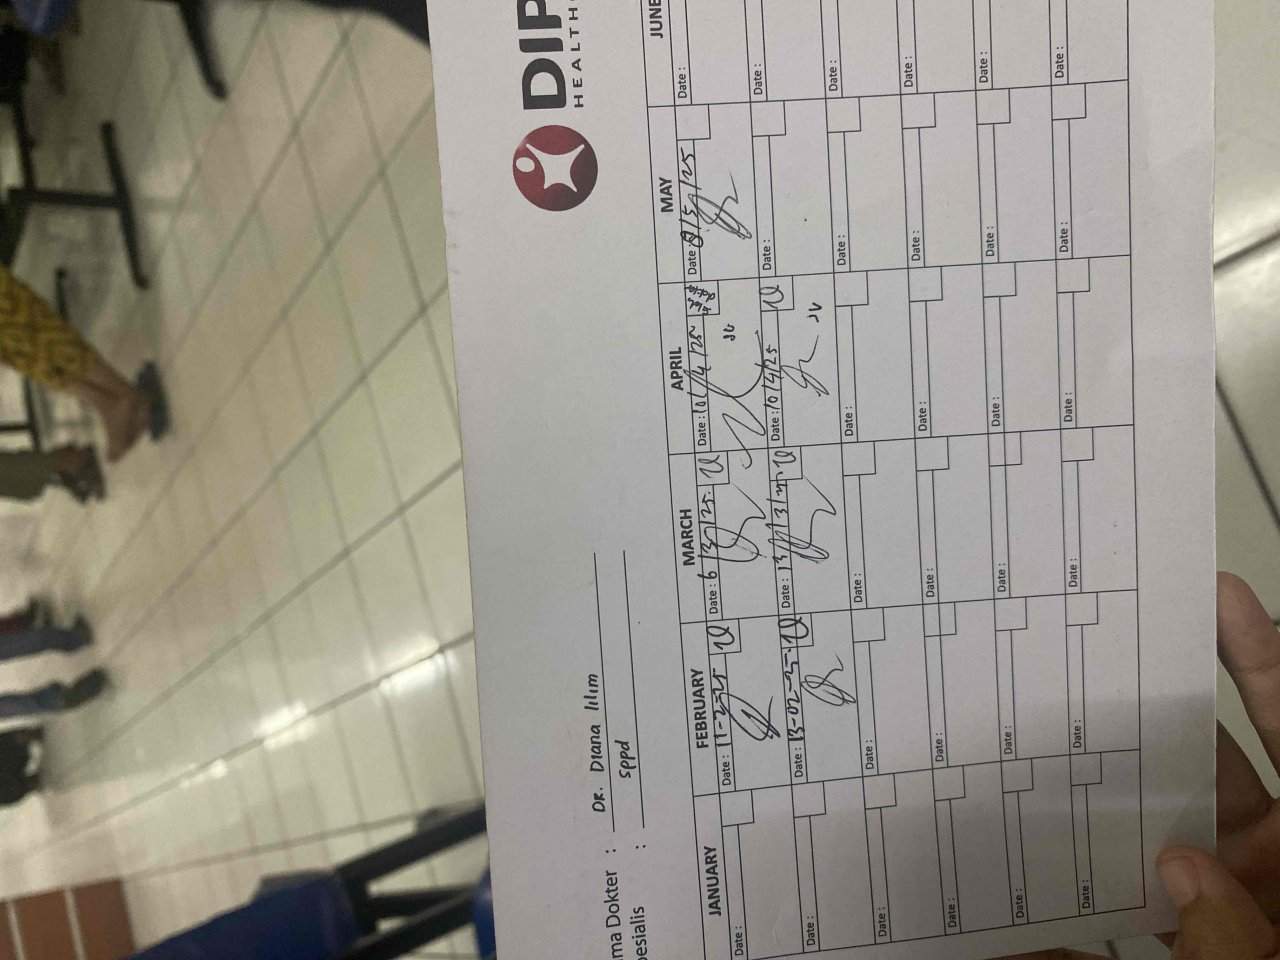 DIP
HEALTHC
ma Dokter : DR. Diana lilim
pesialis : SPPD
JANUARY FEBRUARY MARCH APRIL MAY JUNE
Date : Date : 11-2-25 Date : 6/3/25 Date : 10/4/25 Date : 8/5/25 Date :
Date : Date : 13-02-25 Date : 13/3/25 Date : 10/4/25 Date : Date :
Date : Date : Date : Date : Date : Date :
Date : Date : Date : Date : Date : Date :
Date : Date : Date : Date : Date : Date :
Date : Date : Date : Date : Date : Date :